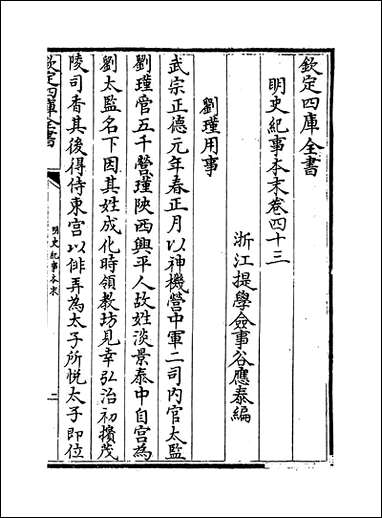 欽定四庫全書
明史紀事本末卷四十三
浙江提學僉事谷應泰編
劉瑾用事
武宗正德元年春正月以神機營中軍二司內官太監
劉瑾管五千營瑾陝西興平人故姓淡景泰中自宮為
劉太監名下因其姓成化時領教坊見幸弘治初擯茂
陵司香其後得侍東宮以俳弄為太子所悅太子即位
欽定四庫全書
明史紀事本末